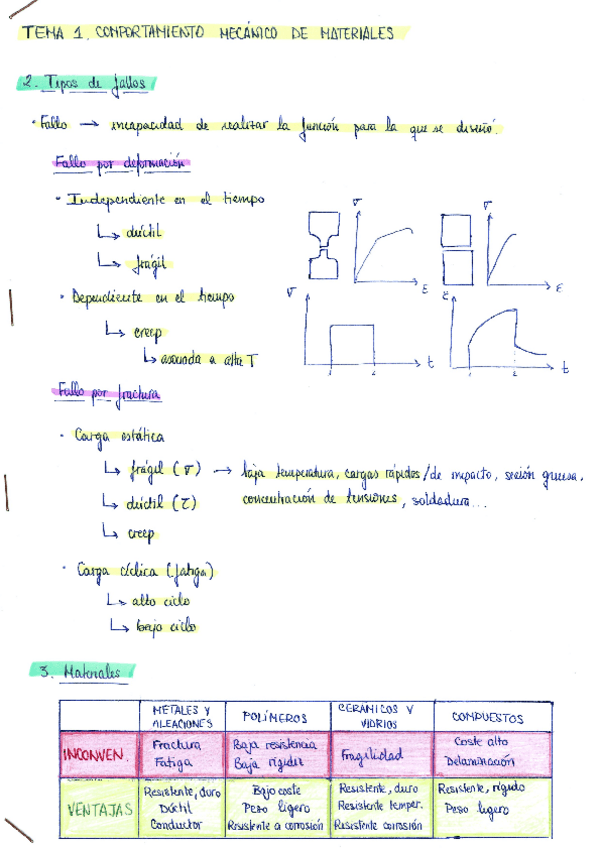 TEMA 1. COMPORTAMIENTO MECÁNICO DE MATERIALES
2. Tipos de fallos
· Fallo → incapacidad de realizar la función para la que se diseñó.
Fallo por deformación
· Independiente en el tiempo
↳ dúctil
↳ frágil
σ
ε
σ
ε
· Dependiente en el tiempo
↳ creep
↳ asociada a alta T
σ
t
ε
t
Fallo por fractura
· Carga estática
↳ frágil (σ) → baja temperatura, cargas rápidas/de impacto, sección gruesa,
concentración de tensiones, soldadura...
↳ dúctil (τ)
↳ creep
· Carga cíclica (fatiga)
↳ alto ciclo
↳ bajo ciclo
3. Materiales
METALES Y ALEACIONES POLÍMEROS CERÁMICOS Y VIDRIOS COMPUESTOS
INCONVEN. Fractura Baja resistencia Fragilidad Coste alto
Fatiga Baja rigidez Delaminación
VENTAJAS Resistente, duro Bajo coste Resistente, duro Resistente, rígido
Dúctil Peso ligero Resistente temper. Peso ligero
Conductor Resistente a corrosión Resistente corrosión